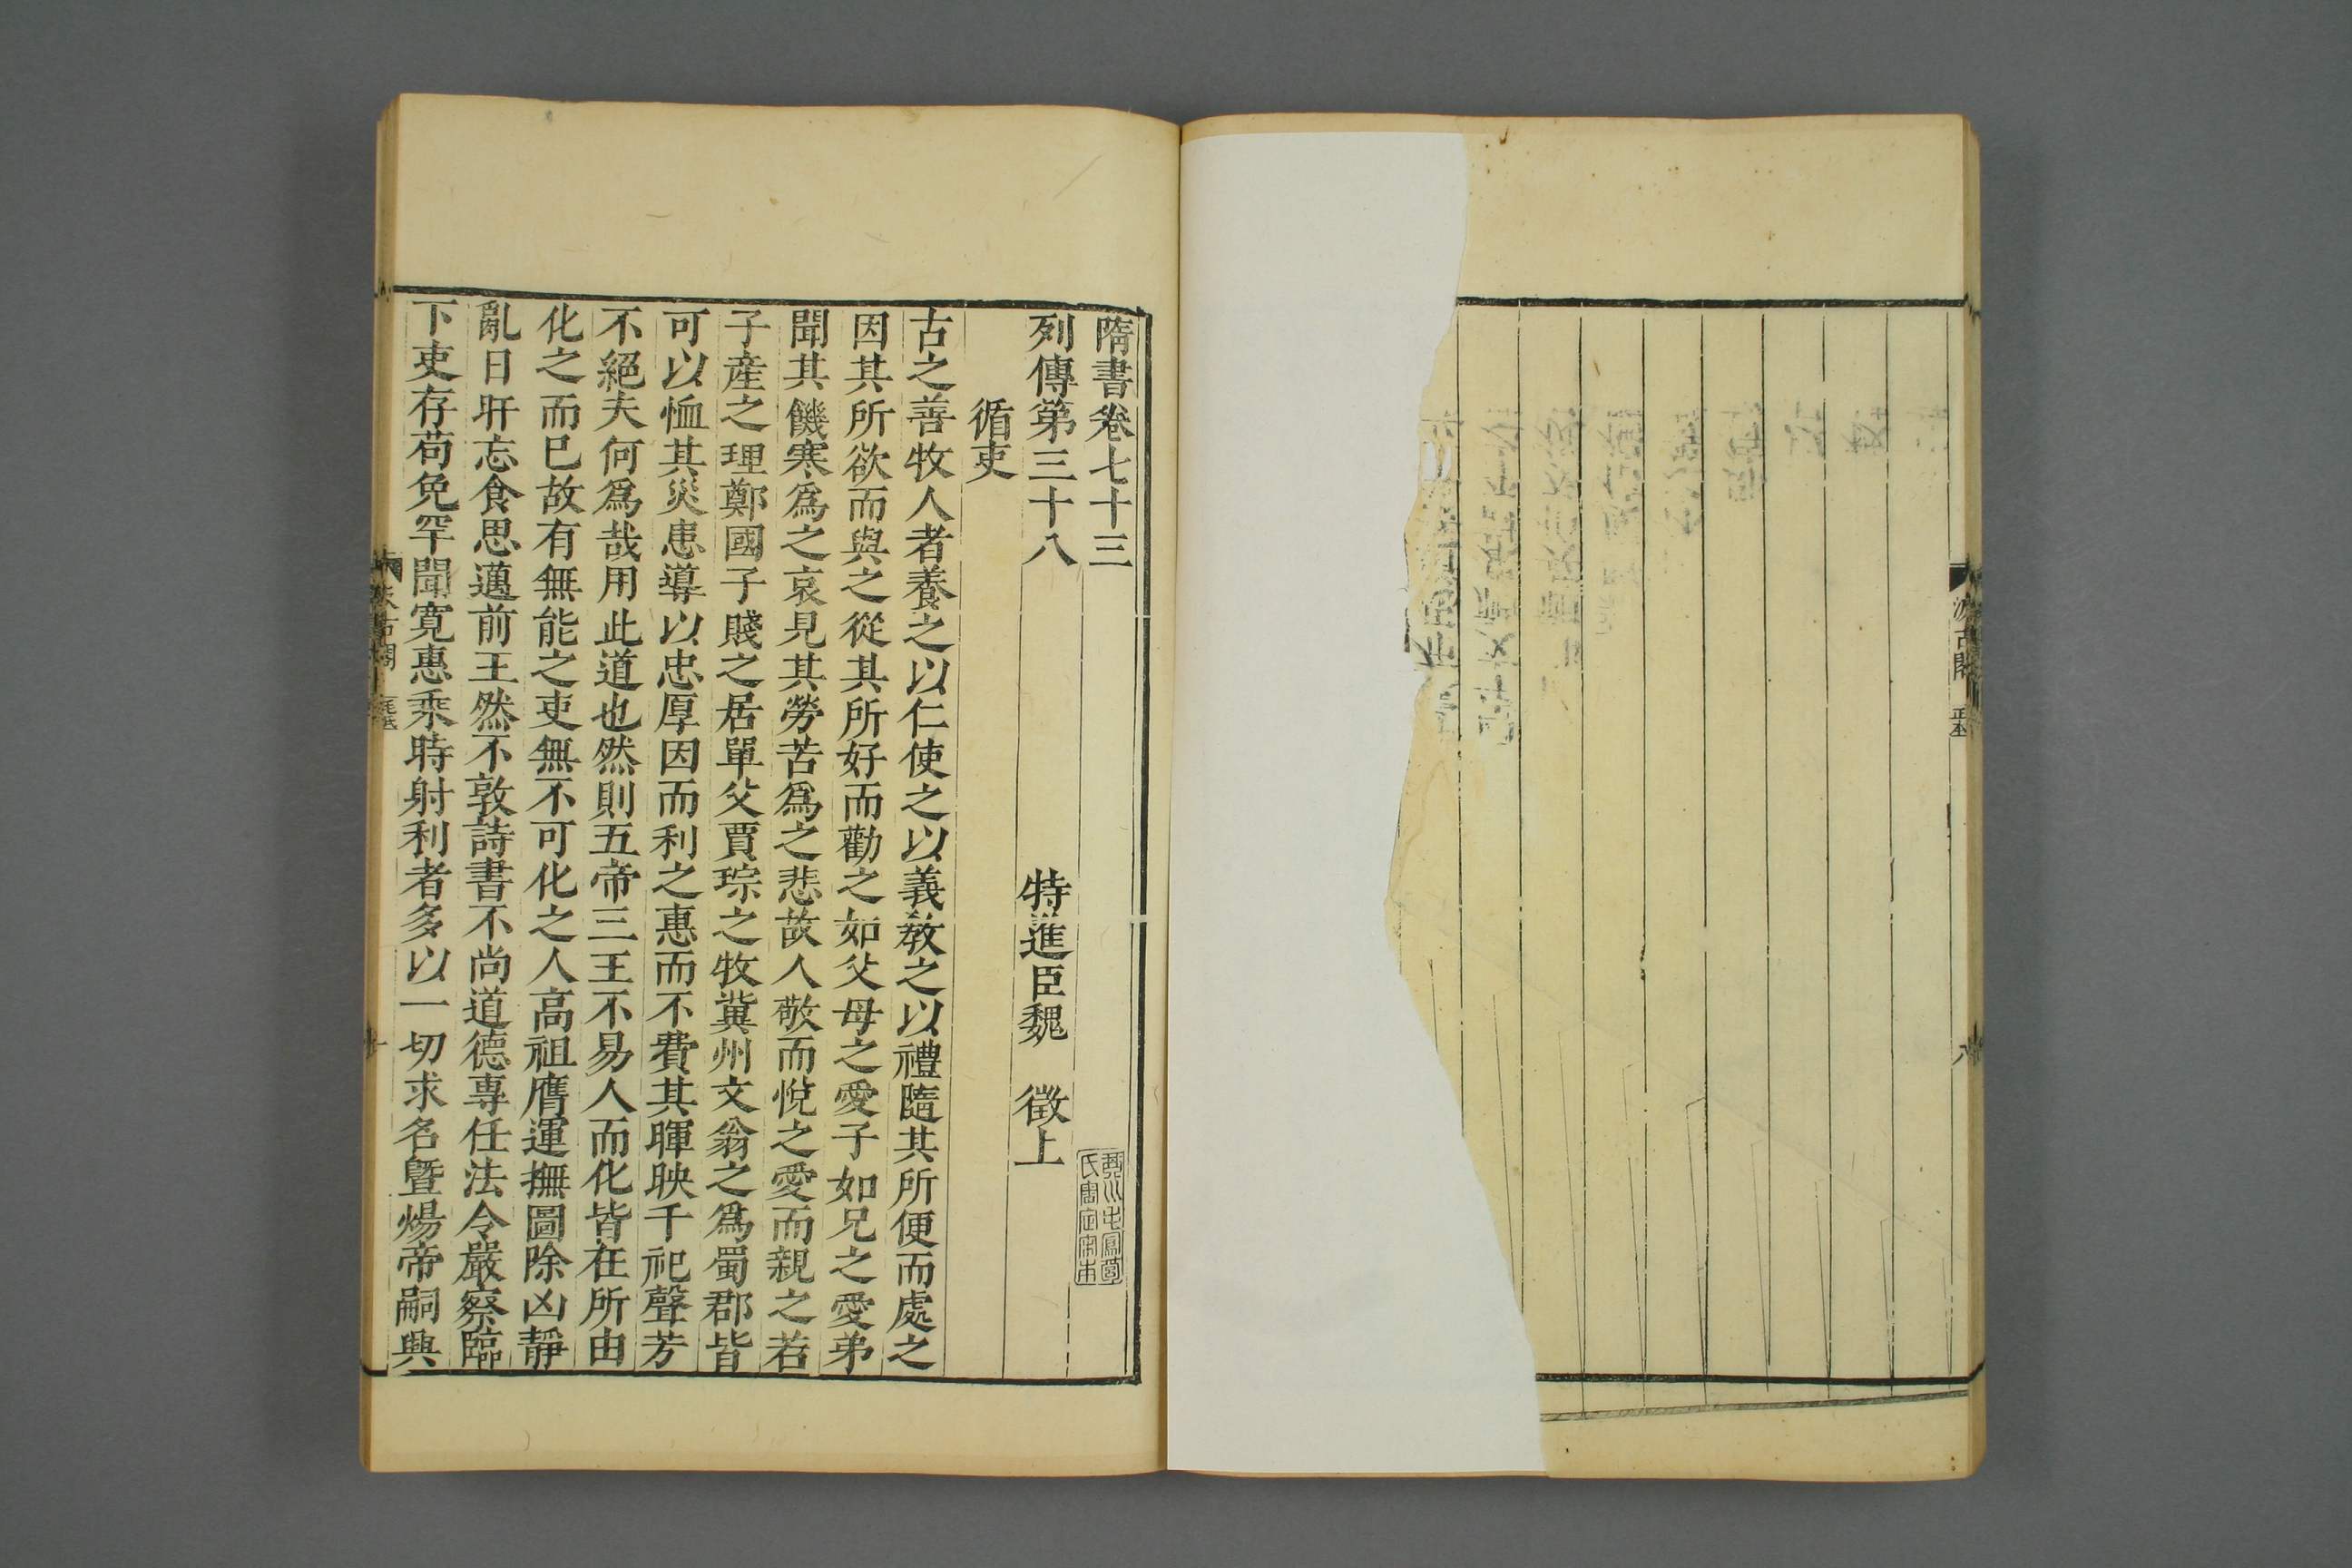 隋書卷七十三
列傳第三十八
特進臣魏 徵上
循吏
古之善牧人者養之以仁使之以義教之以禮隨其所便而處之
因其所欲而與之從其所好而勸之如父母之愛子如兄之愛弟
聞其饑寒爲之哀見其勞苦爲之悲故人敬而悅之愛而親之若
子產之理鄭國子賤之居單父賈琮之牧冀州文翁之爲蜀郡皆
可以恤其災患導以忠厚因而利之惠而不費其暉映千祀聲芳
不絕夫何爲哉用此道也然則五帝三王不易人而化皆在所由
化之而已故有無能之吏無不可化之人高祖膺運撫圖除凶靜
亂日旰忘食思邁前王然不敦詩書不尚道德專任法令嚴察臨
下吏存苟免罕聞寬惠乘時射利者多以一切求名曁煬帝嗣興